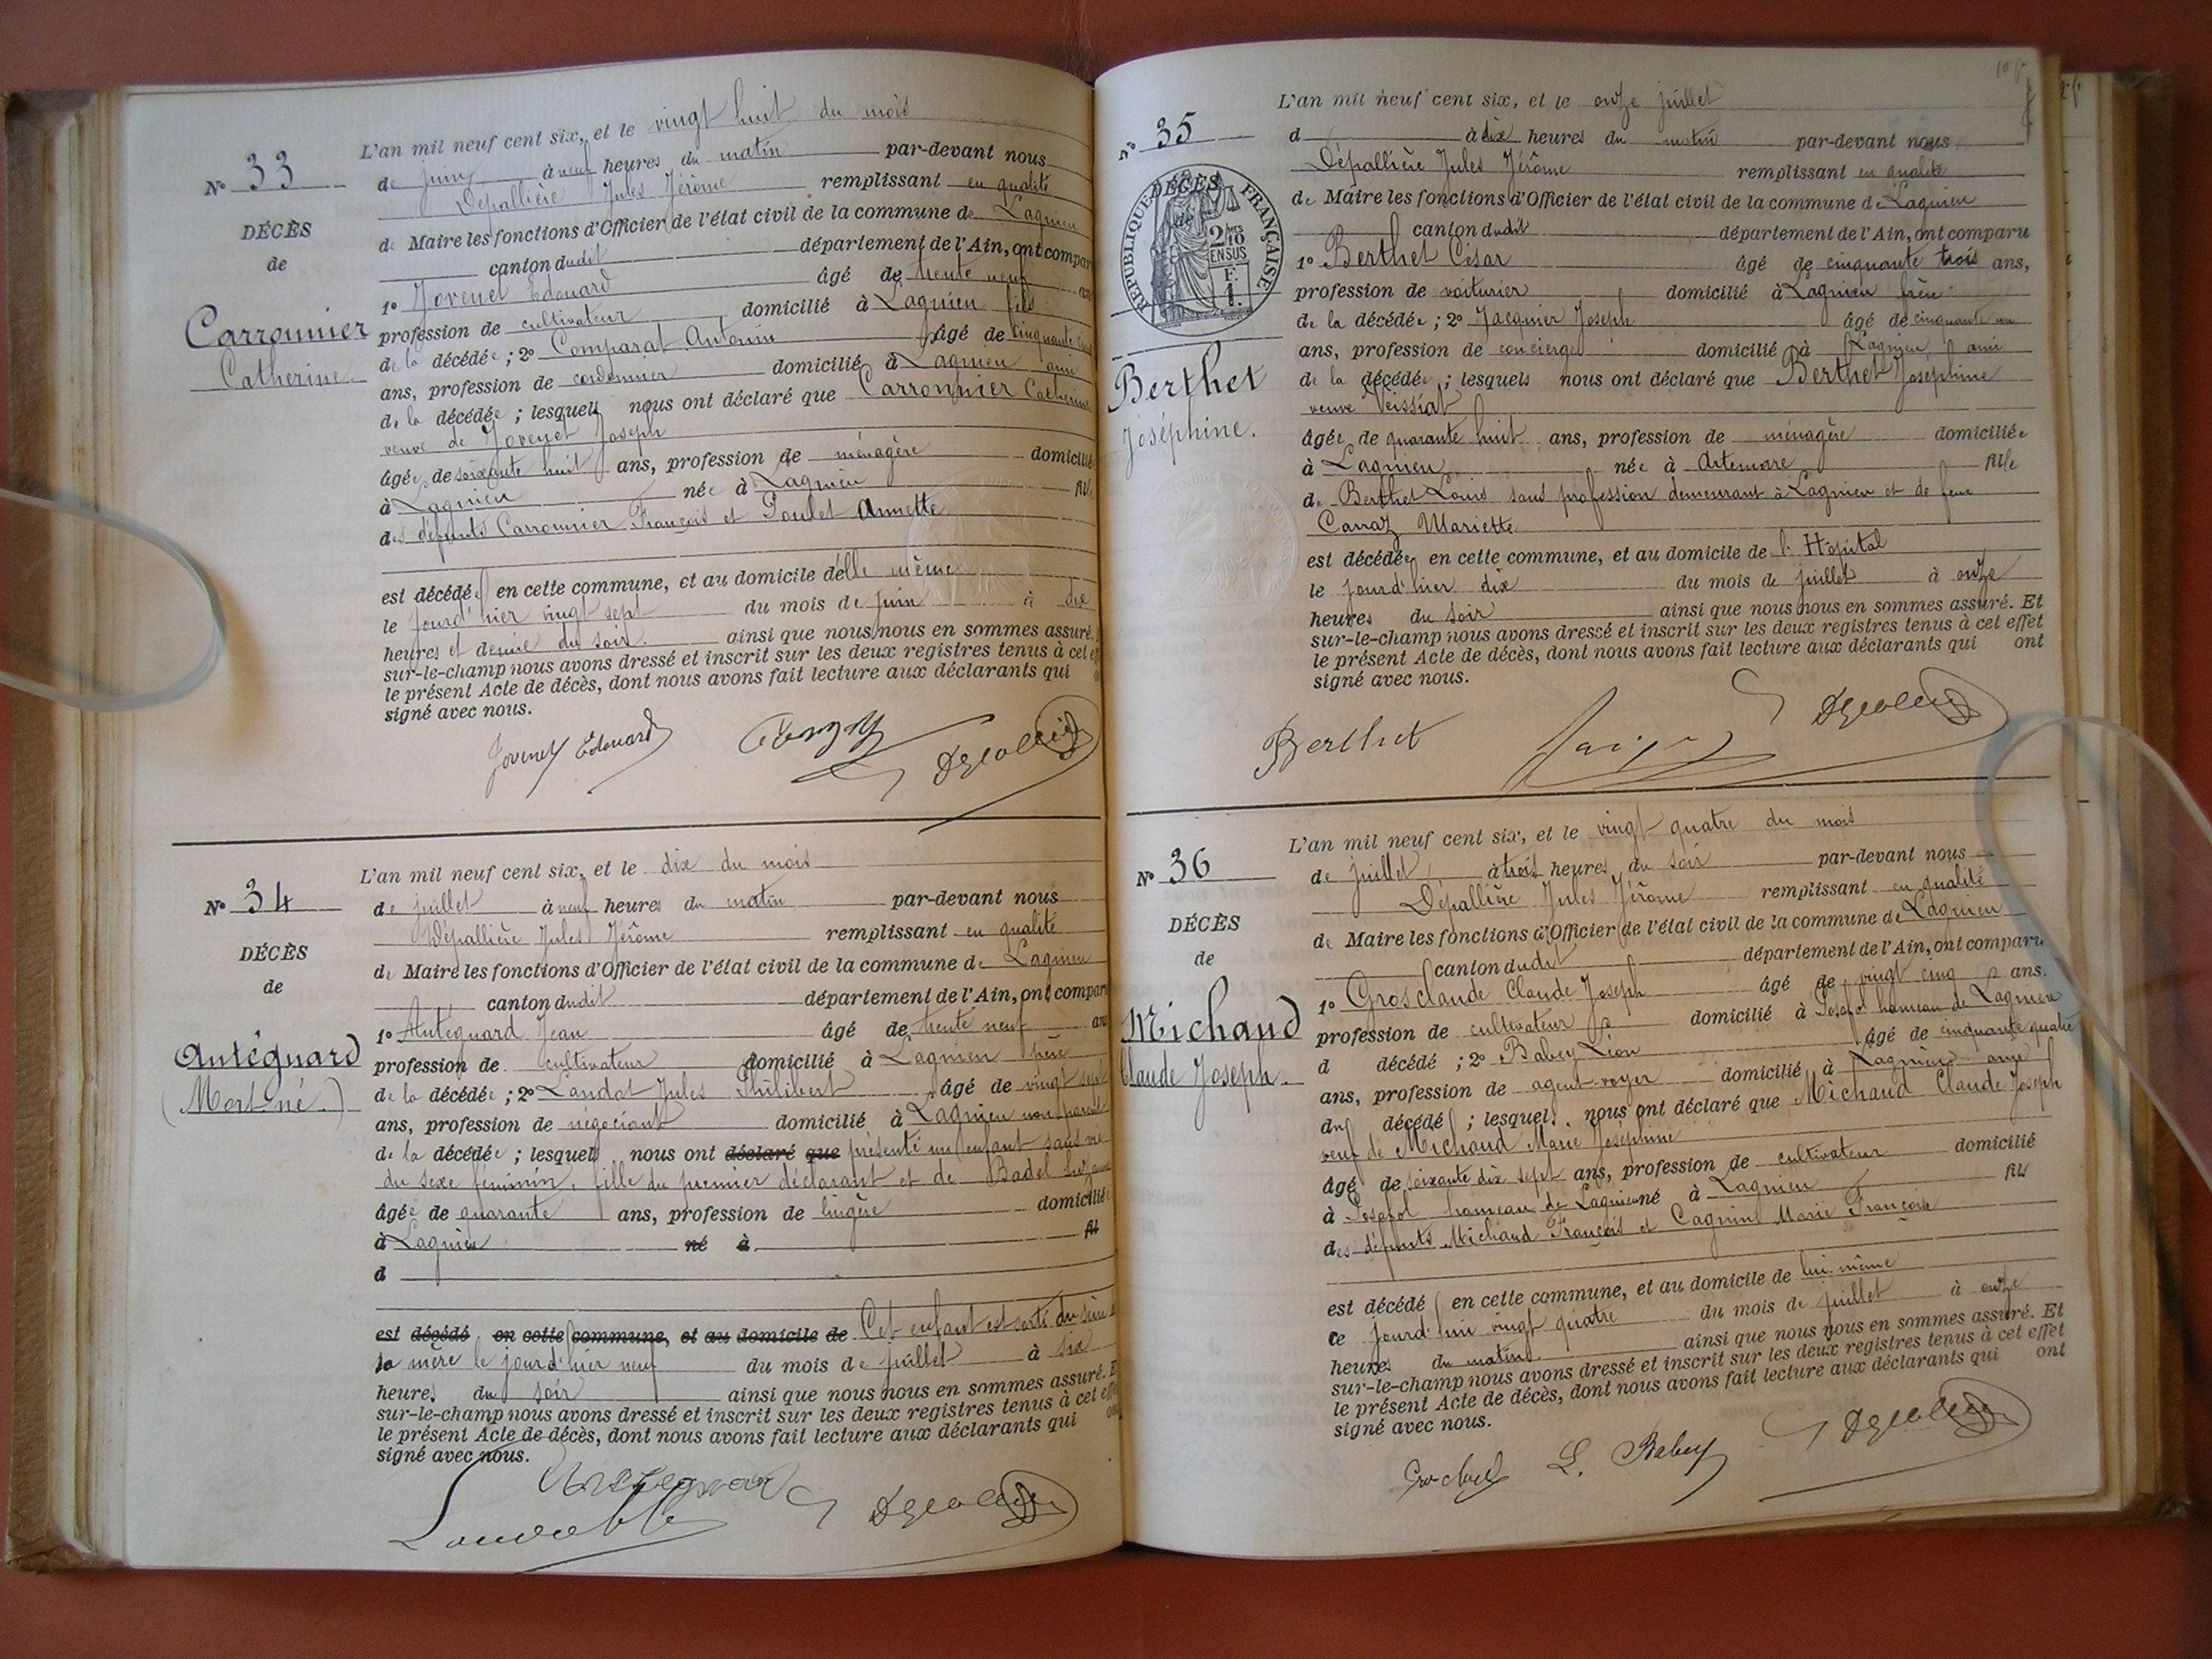 N° 33
DÉCÈS
de
Carronnier
Catherine.
L'an mil neuf cent six, et le vingt huit du mois
de juin à neuf heures du matin par-devant nous
Dépallière Jules Jérôme remplissant en qualité
de Maire les fonctions d'Officier de l'état civil de la commune de Lagnieu
canton dudit département de l'Ain, ont compar
1° Jovenet Edouard âgé de trente neuf an
profession de cultivateur domicilié à Lagnieu fils
de la décédée ; 2° Comparat Antonin âgé de cinquante
ans, profession de cordonnier domicilié à Lagnieu ami
de la décédée ; lesquels nous ont déclaré que Carronnier Catherine
veuve de Jovenet Joseph
âgée de soixante huit ans, profession de ménagère domicilié
à Lagnieu née à Lagnieu fille
des défunts Carronnier François et Poulet Annette
est décédée en cette commune, et au domicile d'elle même
le jourd'hier vingt sept du mois de juin à dix
heures et demie du soir. ainsi que nous nous en sommes assuré.
sur-le-champ nous avons dressé et inscrit sur les deux registres tenus à cet eff
le présent Acte de décès, dont nous avons fait lecture aux déclarants qui
signé avec nous.
Jovenet Edouard
N° 34
DÉCÈS
de
Antégnard
(Mort-né.)
L'an mil neuf cent six, et le dix du mois
de juillet à neuf heures du matin par-devant nous
Dépallière Jules Jérôme remplissant en qualité
de Maire les fonctions d'Officier de l'état civil de la commune de Lagnieu
canton dudit département de l'Ain, ont compar
1° Antégnard Jean âgé de trente neuf ans
profession de cultivateur domicilié à Lagnieu père
de la décédée ; 2° Landot Jules Philibert âgé de vingt sept
ans, profession de négociant domicilié à Lagnieu non parent
de la décédée ; lesquels nous ont déclaré que présenté un enfant sans vie
du sexe féminin, fille du premier déclarant et de Badel Suzanne
âgée de quarante ans, profession de lingère domiciliée
à Lagnieu né à fil
d
est décédé en cette commune, et au domicile de Cet enfant est sorti du sein
la mère le jourd'hier neuf du mois de juillet à six
heures du soir ainsi que nous nous en sommes assuré. E
sur-le-champ nous avons dressé et inscrit sur les deux registres tenus à cet effe
le présent Acte de décès, dont nous avons fait lecture aux déclarants qui on
signé avec nous.
N° 35
RÉPUBLIQUE FRANÇAISE
DÉCÈS
de
2/10 EN SUS
F. 1.
Berthet
Joséphine.
L'an mil neuf cent six, et le onze juillet
d à dix heures du matin par-devant nous
Dépallière Jules Jérôme remplissant en qualité
de Maire les fonctions d'Officier de l'état civil de la commune de Lagnieu
canton dudit département de l'Ain, ont comparu
1° Berthet César âgé de cinquante trois ans,
profession de voiturier domicilié à Lagnieu frère
de la décédée ; 2° Jacquier Joseph âgé de cinquante un
ans, profession de concierge domicilié à Lagnieu ami
de la décédée ; lesquels nous ont déclaré que Berthet Joséphine
veuve Veissiat
âgée de quarante huit ans, profession de ménagère domiciliée
à Lagnieu née à Artemare fille
de Berthet Louis sans profession demeurant à Lagnieu et de feue
Carraz Mariette
est décédée en cette commune, et au domicile de l'Hôpital
le jourd'hier dix du mois de juillet à onze
heures du soir ainsi que nous nous en sommes assuré. Et
sur-le-champ nous avons dressé et inscrit sur les deux registres tenus à cet effet
le présent Acte de décès, dont nous avons fait lecture aux déclarants qui ont
signé avec nous.
Berthet
N° 36
DÉCÈS
de
Michaud
Claude Joseph.
L'an mil neuf cent six, et le vingt quatre du mois
de juillet à trois heures du soir par-devant nous
Dépallière Jules Jérôme remplissant en qualité
de Maire les fonctions d'Officier de l'état civil de la commune de Lagnieu
canton dudit département de l'Ain, ont comparu
1° Grosclaude Claude Joseph âgé de vingt cinq ans.
profession de cultivateur domicilié à Posafol hameau de Lagnieu
d décédé ; 2° Babey Léon âgé de cinquante quatre
ans, profession de agent-voyer domicilié à Lagnieu ami
du décédé ; lesquels nous ont déclaré que Michaud Claude Joseph
veuf de Michaud Marie Joséphine
âgé de soixante dix sept ans, profession de cultivateur domicilié
à Posafol hameau de Lagnieu né à Lagnieu fils
des défunts Michaud François et Cagnin Marie Françoise
est décédé en cette commune, et au domicile de lui-même
ce jourd'hui vingt quatre du mois de juillet à onze
heures du matin ainsi que nous nous en sommes assuré. Et
sur-le-champ nous avons dressé et inscrit sur les deux registres tenus à cet effet
le présent Acte de décès, dont nous avons fait lecture aux déclarants qui ont
signé avec nous.
L. Babey